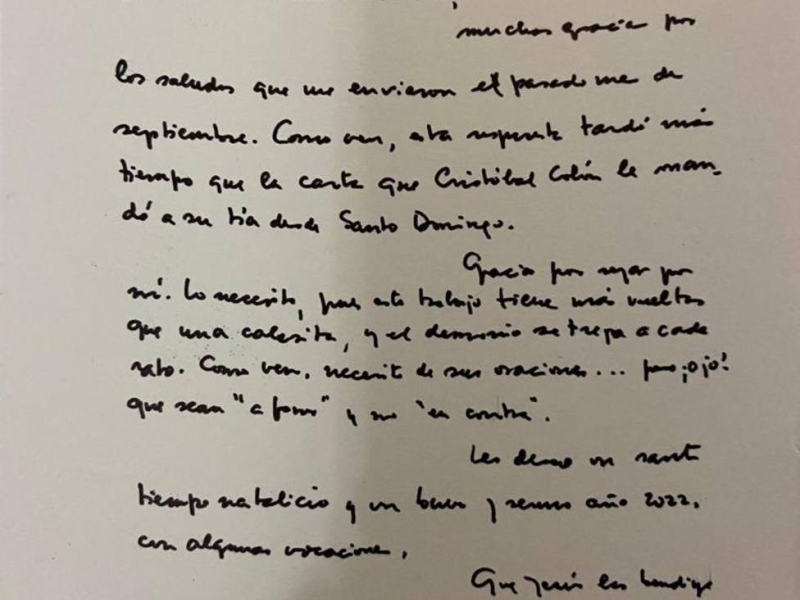 muchas gracias por
los saludos que me enviaron el pasado mes de
septiembre. Como ven, esta respuesta tardó más
tiempo que la carta que Cristóbal Colón le man-
dó a su tía desde Santo Domingo.
Gracias por rezar por
mí. Lo necesito, pues este trabajo tiene más vueltas
que una calesita, y el demonio se trepa a cada
rato. Como ven, necesito de sus oraciones... pero ¡ojo!
que sean "a favor" y no "en contra".
Les deseo un santo
tiempo natalicio y un buen y sereno año 2022,
con algunas vocaciones.
Que Jesús los bendiga